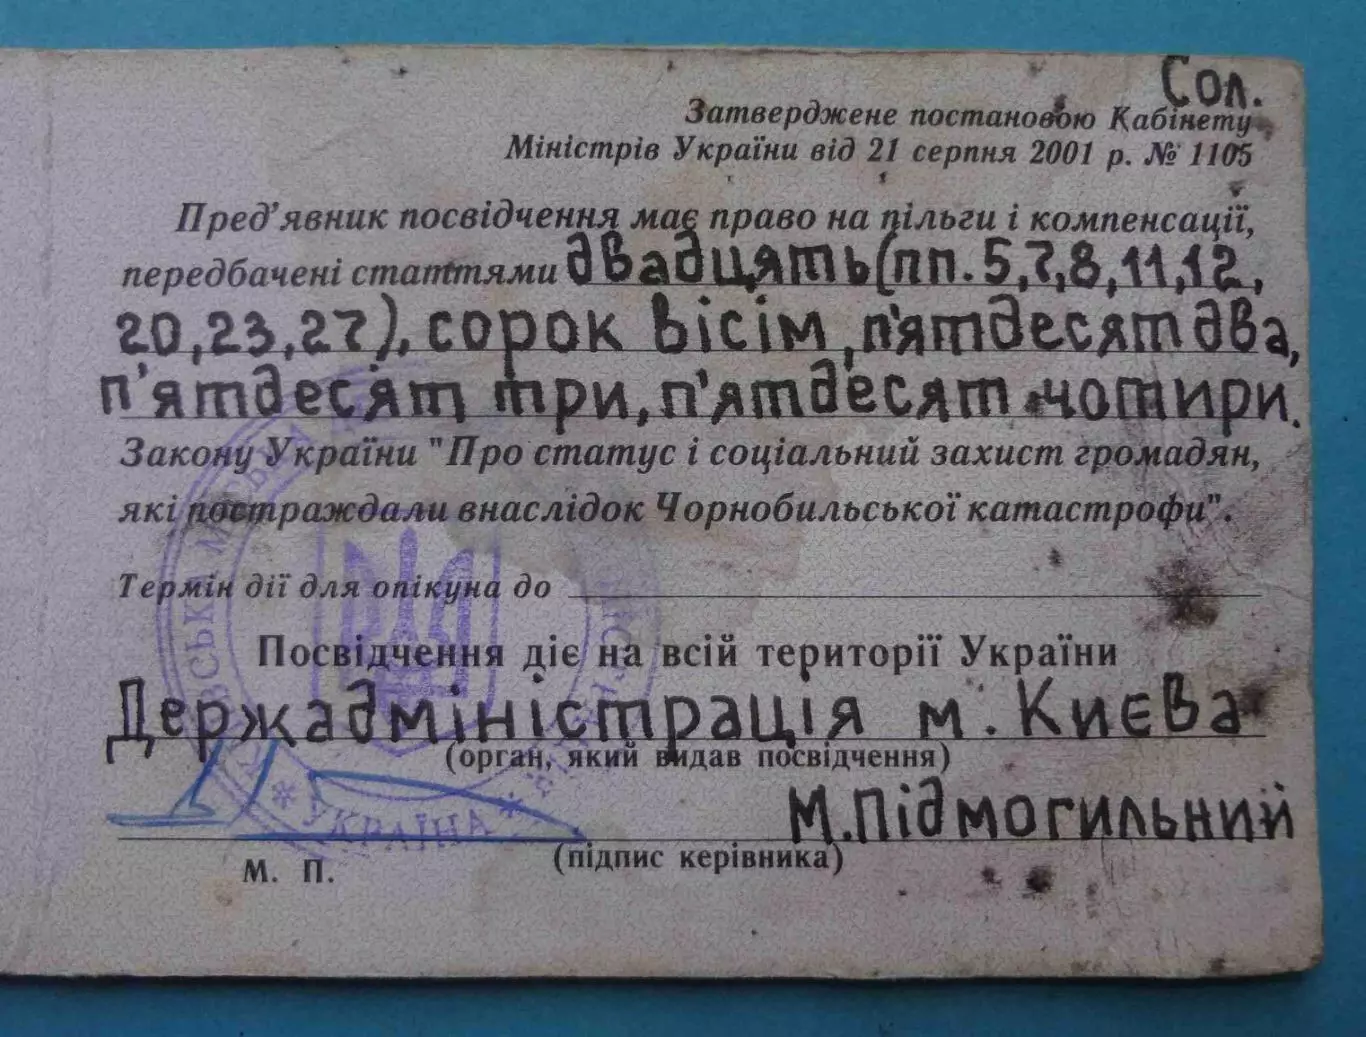 Сол.
Затверджене постановою Кабінету
Міністрів України від 21 серпня 2001 р. № 1105
Пред'явник посвідчення має право на пільги і компенсації,
передбачені статтями двадцять (пп. 5,7,8,11,12,
20,23,27), сорок вісім, п'ятдесят два,
п'ятдесят три, п'ятдесят чотири.
Закону України "Про статус і соціальний захист громадян,
які постраждали внаслідок Чорнобильської катастрофи".
Термін дії для опікуна до
Посвідчення діє на всій території України
Держадміністрація м. Києва
(орган, який видав посвідчення)
М.Підмогильний
(підпис керівника)
М. П.
* УКРАЇНА *